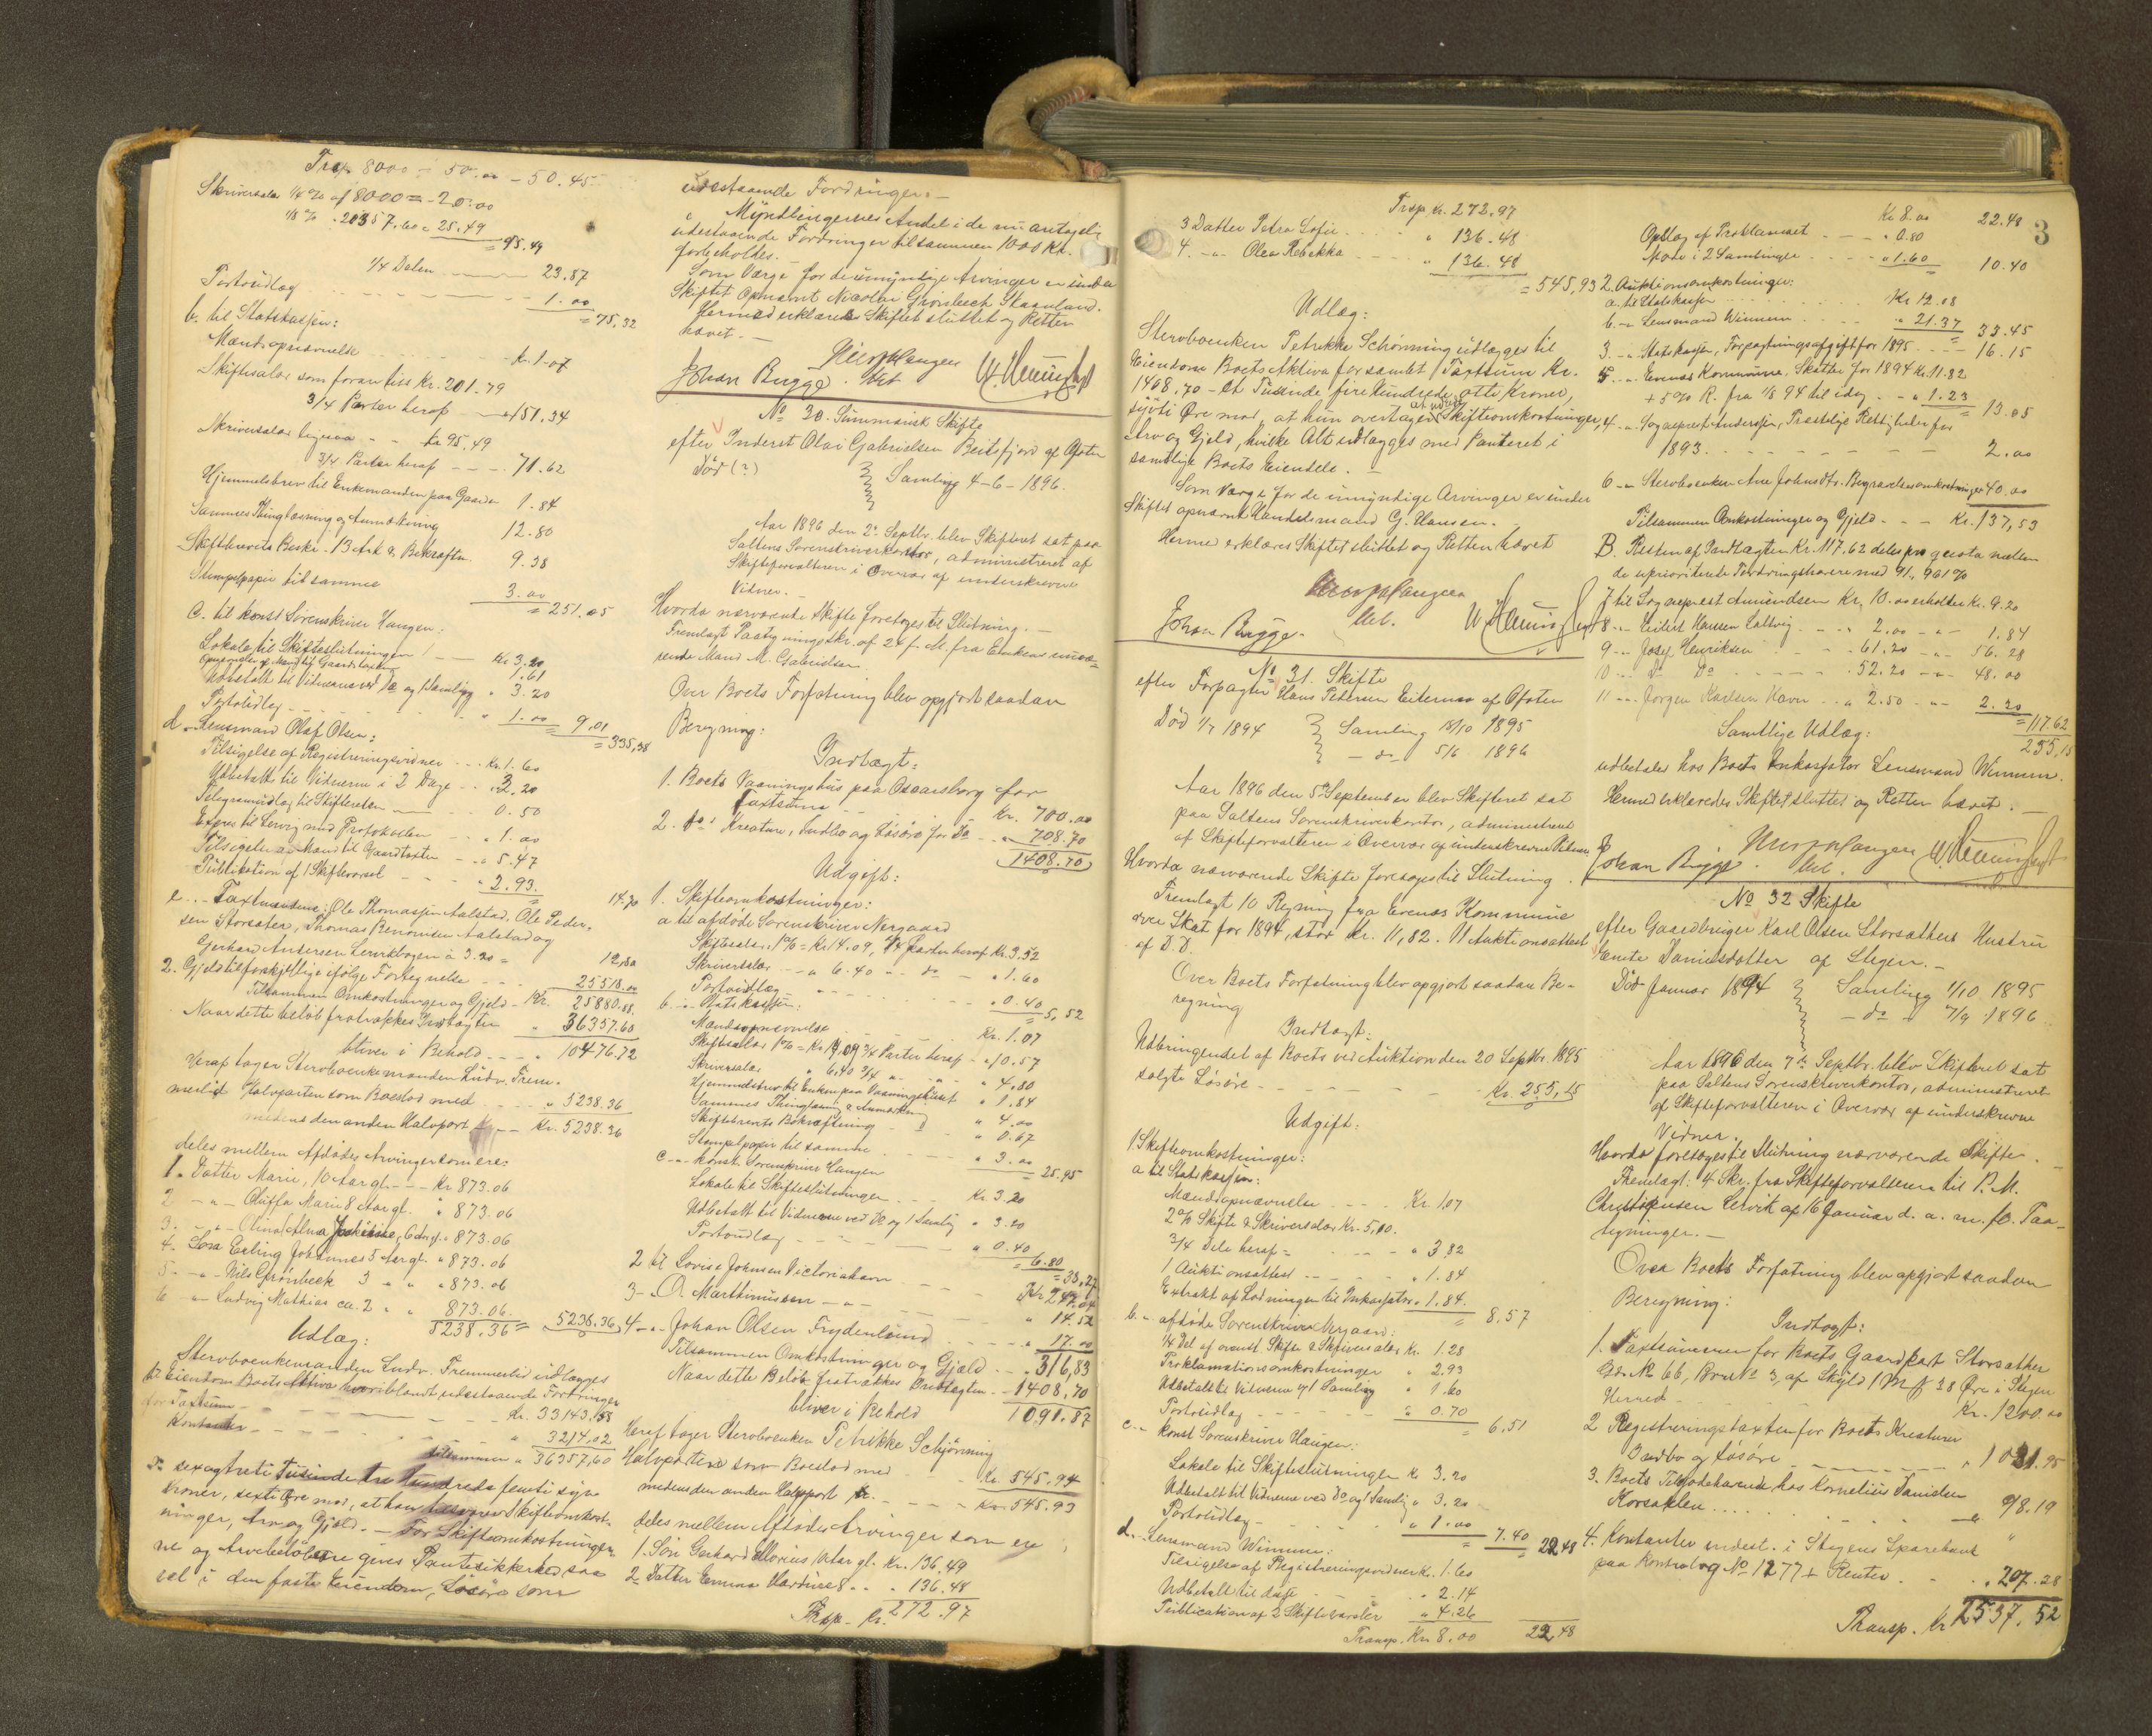 Trsp. 8000 - 50.00 - 50.45
Skriversalær 1/4 % af 8000 = 20.00
1/8 % " 20357.60 = 25.49
= 95.49
1/4 Delen 23.87
Portoudlæg 1.00
= 75.32
b. til Statskassen:
Mændsopnævnelse Kr. 1.07
Skiftesalær som foran tils Kr. 201.79
3/4 Parter heraf " 151.34
Skriversalær ligesaa Kr 95.49
3/4 Parter heraf 71.62
Hjemmelsbrev til Enkemanden paa Gaarden 1.84
Sammes Thinglæsning og Anmærkning 12.80
Skiftebrevets Beskr. 13 Ark & Bekræftn. 9.38
Stempelpapir til samme 3.00
= 251.05
c. til konst. Sorenskriver Haugen:
Lokale til Skifteslutningen Kr 3.20
Opnævnelse af Mænd til Gaardstaxten 1.61
Udbetalt til Vidnerne ved Do og 1 Samling " 3.20
Portoudlæg " 1.00
= 9.01
= 335.38
d. Lensmand Olaf Olsen:
Tilsigelse af Registreringsvidner Kr. 1.60
Udbetalt til Vidnerne i 2 Dage " 3.20
Telegramudlæg til Skifteretten 0.50
Expres til Leivig med Protokollen " 1.00
Tilsigelse af Mænd til Gaardtaxten " 5.47
Publikation af 1 Skiftevarsel " 2.93
14.70
e. Taxtmændene: Ole Thomassen Aalstad, Ole Peder-
sen Storsæter, Thomas Benonisen Aalstad og
Gerhard Andersen Lervikbogen à 3.20 = 12.80
2. Gjeld til forskjellige ifølge Fortegnelse 25518.00
Tilsammen Omkostninger og Gjeld Kr. 25880.88
Naar dette beløb fratrækkes Indtægten " 36357.60
bliver i Behold " 10476.72
Heraf tager Stervboenkemanden Ludv. Trem-
merlid Halvparten som Boeslod med " 5238.36
medens den anden Halvpart Kr. 5238.36
deles mellem Afdødes Arvinger som ere:
1. Datter Marie, 10 Aar gl. Kr 873.06
2 " Oluffa Marie 8 Aar gl. " 873.06
3. " Olina Alma Joakime, 6 Aar gl. " 873.06
4. Søn Erling Johannes 5 Aar gl. " 873.06
5. " Nils Grønbeck 3 " " " 873.06
6 " Ludvig Mathias ca. 2 " " 873.06
5238.36 = 5238.36
Udlæg:
Stervboenkemanden Ludv. Tremmerlid udlægges
til Eiendom Boets Aktiva hvoriblandt udestaaende Fordringer
for Taxtsum Kr. 33143.58
Kontanter " 3214.02
tilsammen " 36357,60
sexogtreti Tusinde tre Hundrede femti syv
Kroner, sexti Øre mod, at han besørger Skifteomkost-
ninger, Arv og Gjeld. - For Skifteomkostninger-
ne og Arvebeløbene gives Pantesikkerhed saa
vel i den faste Eiendom, Løsøre som
udestaaende Fordringer. -
Myndlingernes Andel i de nu antagelig
udestaaende Fordringer tilsammen 1000 Kr.
forbeholdes. -
Som Værge for de umyndige Arvinger er under
Skiftet opnævnt Nicolai Grønbech Skaanland.
Hermed erklæredes Skiftet sluttet og Retten
hævet. -
Johan Brygge.
No 30. Summarisk Skifte
efter Inderst Olai Gabrielsen Beitsfjord af Ofoten
Død (?) Samling 4-6-1896.
Aar 1896 den 2. Septbr. blev Skifteret sat paa
Saltens Sorenskriverkontor, administreret af
Skifteforvalteren i Overvær af underskrevne
Vidner. -
Hvorda nærværende Skifte foretoges til Slutning. -
Fremlagt Paategningsskr. af 24 f. M. fra Enkens nævæ-
rende Mand M. Gabrielsen.
Over Boets Forfatning blev opgjort saadan
Beregning:
Indtægt:
1. Boets Vaaningshus paa Oscarsborg for
Taxtsum Kr. 700.00
2. Do Kreature, Indbo og Løsøre for Do " 708.70
1408.70
Udgift:
1. Skifteomkostninger:
a til afdøde Sorenskriver Nergaard
Skiftesalær 1 % = Kr 14.09, 1/4 parten heraf Kr. 3.52
Skriversalær " 6.40 " do " 1.60
Portoudlæg " 0.40
= 5,52
b. " Statskassen:
Mændsopnævnelse Kr. 1.07
Skiftesalær 1 % = Kr 14,09 3/4 Parter heraf " 10.57
Skriversalær " 6.40 3/4 " " 4,80
Hjemmelsbrev til Enken paa Vaaningshuset " 1.84
Sammes Thinglæsning & Anmærkning " 0.67
Skiftebrevets Bekræftning " 4.00
Stempelpapir til samme " 3.00
= 25.95
c " konst. Sorenskriver Haugen
Lokale til Skifteslutningen Kr 3.20
Udbetalt til Vidnerne ved Do og 1 Samling " 3.20
Portoudlæg " 0.40
= 6.80
= 38,27
2 til Lovise Johnsen Victoriahavn Kr 247.04
3 " O. Marthinussen " 14.52
4 " Johan Olsen Frydenlund " 17.00
Tilsammen Omkostninger og Gjæld 316,83
Naar dette Beløb fratrækkes Indtægten 1408,70
bliver i Behold 1091.87
Heraf tager Stervboenken Petrikke Schjønning
Halvparten som Boeslod med Kr. 545.94
medens den anden Halvpart Kr. 545.93
deles mellem Afdødes Arvinger som ere
1. Søn Gerhard Morius 10 Aar gl. Kr. 136,49
2. Datter Emma Hardine 8 " " 136.48
Trsp. Kr. 272.97
Trsp. Kr. 272.97
3 Datter Petra Sofie " 136.48
4. " Olea Rebekka " 136.48
= 545,93
Udlæg:
Stervboenken Petrikke Schønning udlægges til
Eiendom Boets Aktiva for samlet Taxtsum Kr.
1408.70 - et Tusinde fire Hundrede otte Kroner,
sytti Øre mod, at hun overtager at udrede Skifteomkostninger,
Arv og Gjeld, hvilke Alt udlægges med Panteret i
samtlige Boets Eiendele. -
Som Værge for de umyndige Arvinger er under
Skiftet opnævnt Handelsmand G. Hansen. -
Hermed erklæres Skiftet sluttet og Retten hævet
Johan Brygge.
No 31. Skifte
efter Forpagter Hans Pedersen Eiternes af Ofoten
Død 1/7 1894 Samling 18/10 1895
- do 5/6 1896
Aar 1896 den 5te September blev Skifteret sat
paa Saltens Sorenskriverkontor, administreret
af Skifteforvalteren i Overvær af underskrevne Vidner
Hvorda nærværende Skifte foretoges til Slutning.
Fremlagt 10 Regning fra Evenæs Kommune
over Skat for 1894, stor Kr. 11,82. 11 Auktionsattest
af D.D.
Over Boets Forfatning blev opgjort saadan Be-
regning
Indtægt:
Udbringendet af Boets ved Auktion den 20 Septbr. 1895
solgte Løsøre Kr. 255,15
Udgift:
1. Skifteomkostninger:
a til Statskassen:
Mændsopnævnelse Kr. 1,07
2 % Skifte & Skriversalær Kr. 5,10.
3/4 Dele heraf = " 3,82
1 Auktionsattest " 1.84
Extrakt af Lodningen til Inkassator " 1.84
= 8.57
b. " afdøde Sorenskriver Nergaard:
1/4 Del af ovennt. Skifte & Skriversalær Kr. 1.28
Proklamationsomkostninger " 2,93
Udbetalt til Vidnerne ved 1 Samling " 1.60
Portoudlæg " 0.70
= 6,51
c. " konst Sorenskriver Haugen:
Lokale til Skifteslutningen Kr 3.20
Udbetalt til Vidnerne ved Do og 1 Samling " 3.20
Portoudlæg " 1.00
= 7.40 = 22.48
d. " Lensmand Winnem:
Tilsigelse af Registreringsvidner Kr. 1.60
Udbetalt til disse " 2.14
Publication af 2 Skiftevarsler " 4.26
Transp. Kr 8.00 22.48
3
Kr 8.00 22.48
Opslag af Proklamaet " 0.80
Møde i 2 Samlinger " 1.60
= 10.40
2. Auktionsomkostninger:
a. til Statskassen Kr 12.08
b. " Lensmand Winnem " 21.37
= 33.45
3. " Statskassen, Forpagtningsafgift for 1895 16.15
5 " Evenæs Kommune, Skatter for 1894 Kr. 11.82
+ 5 % R. fra 1/8 94 til idag " 1.23
= 13.05
4. " Sogneprest Andersen, Præstelige Rettigheder for
1893 2.00
6 " Stervboenken Ane Johnsdtr. Begravelsesomkostninger 40.00
Tilsammen Omkostninger og Gjeld Kr. 137,53
B. Resten af Indtægten Kr. 117.62 deles pro quota mellem
de uprioriterede Fordringshavere med 91,961 %
7 til Sogneprest Amundsen Kr, 10.00 erholder Kr. 9.20
8 " Eidert Hansen Lallvig " 2.00 " 1.84
9 " Josef Henriksen " 61.20 " 56.28
10 " Do Do 52.20 " 48.00
11 " Jørgen Karlsen Havn " 2.50 " 2.30
= 117.62
255,15
Samtlige Udlæg:
udbetales hos Boets Inkassator Lensmand Winnem.
Hermed erklæredes Skiftet sluttet og Retten hævet. -
Johan Brygge.
No 32 Skifte
efter Gaardbruger Karl Olsen Storsæthers Hustru
Danielsdatter af Stegen. -
Død Januar 1894 Samling 1/10 1895
- do - 7/9 1896
Aar 1896 den 7de Septbr. blev Skifteret sat
paa Saltens Sorenskriverkontor, administreret
af Skifteforvalteren i Overvær af underskrevne
Vidner.
Hvorda foretoges til Slutning nærværende Skifte. -
Fremlagt: 4 Skr. fra Skifteforvalteren til P. M.
Christensen Lervik af 16 Januar d. a. m. fl. Paa-
tegninger. -
Over Boets Forfatning blev opgjort saadan
Beregning:
Indtægt:
1. Taxtsummen for Boets Gaardpart Storsæther
Gds. No 66, Brns No 3, af Skyld 1 M 38 Øre i Stegen
Herred Kr. 1200.00
2 Registreringstaxten for Boets Kreaturer
Indbo og Løsøre " 1031.95
3. Boets Tilgodehavende hos Kornelius Danielsen
Korsaklen " 98.19
4. Kontanter indest. i Stegens Sparebank
paa Kontrabog No 1277 + Renter " 207.28
Transp. Kr 2537,52